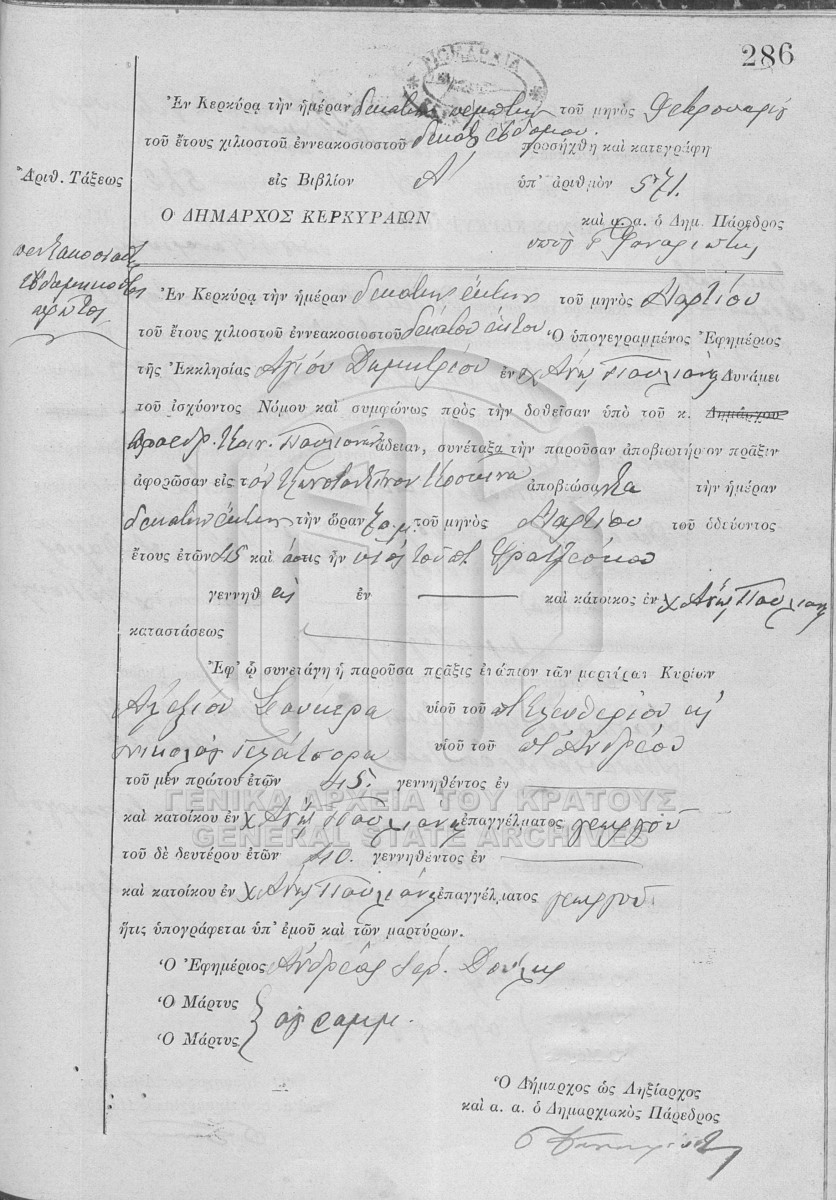 286
ΝΟΜΑΡΧΙΑ
Ἐν Κερκύρᾳ τὴν ἡμέραν δεκάτην πέμπτην τοῦ μηνὸς Φεβρουαρίου
τοῦ ἔτους χιλιοστοῦ ἐννεακοσιοστοῦ δεκάτου ἑβδόμου προσήχθη καὶ κατεγράφη
Ἀριθ. Τάξεως
εἰς Βιβλίον Α' ὑπ' ἀριθμὸν 571.
Ο ΔΗΜΑΡΧΟΣ ΚΕΡΚΥΡΑΙΩΝ καὶ α. α. ὁ Δημ. Πάρεδρος
πεντακοσιοστὸς
ἑβδομηκοστὸς
πρῶτος
Ἐν Κερκύρᾳ τὴν ἡμέραν δεκάτην ἕκτην τοῦ μηνὸς Μαρτίου
τοῦ ἔτους χιλιοστοῦ ἐννεακοσιοστοῦ δεκάτου ἕκτου Ὁ ὑπογεγραμμένος Ἐφημέριος
τῆς Ἐκκλησίας Ἁγίου Δημητρίου ἐν χ Ἄνω Παυλιάνα Δυνάμει
τοῦ ἰσχύοντος Νόμου καὶ συμφώνως πρὸς τὴν δοθεῖσαν ὑπὸ τοῦ κ. Δημάρχου
Προέδρ. Κοιν. Παυλιάνας ἄδειαν, συνέταξα τὴν παροῦσαν ἀποβιωτήριον πρᾶξιν
ἀφορῶσαν εἰς τὸν Κωνσταντῖνον ἀποβιώσαντα τὴν ἡμέραν
δεκάτην ἕκτην τὴν ὥραν 7 π.μ. τοῦ μηνὸς Μαρτίου τοῦ ὁδεύοντος
ἔτους ἐτῶν 45 καὶ ὅστις ἦν υἱὸς τοῦ π Φρατζέσκου
γεννηθεὶς ἐν καὶ κάτοικος ἐν χ Ἄνω Παυλιάνα
καταστάσεως
Ἐφ' ᾧ συνετάγη ἡ παροῦσα πρᾶξις ἐνώπιον τῶν μαρτύρων Κυρίων
Ἀλεξίου υἱοῦ τοῦ π Ἐλευθερίου κ
Νικολάου υἱοῦ τοῦ π Ἀνδρέου
τοῦ μὲν πρώτου ἐτῶν 45. γεννηθέντος ἐν
ΓΕΝΙΚΑ ΑΡΧΕΙΑ ΤΟΥ ΚΡΑΤΟΥΣ
καὶ κατοίκου ἐν χ Ἄνω Παυλιάνα ἐπαγγέλματος γεωργοῦ
GENERAL STATE ARCHIVES
τοῦ δὲ δευτέρου ἐτῶν 40. γεννηθέντος ἐν
καὶ κατοίκου ἐν χ Ἄνω Παυλιάνα ἐπαγγέλματος γεωργοῦ.
ἥτις ὑπογράφεται ὑπ' ἐμοῦ καὶ τῶν μαρτύρων.
Ὁ Ἐφημέριος Ἀνδρέας ἱερ. Δούλης
Ὁ Μάρτυς
ἀγραμμ.
Ὁ Μάρτυς
Ὁ Δήμαρχος ὡς Ληξίαρχος
καὶ α. α. ὁ Δημαρχιακὸς Πάρεδρος